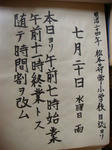 明治二十四年 熊本尋常小学校日誌ヨリ
七月二十日 水曜日 雨
本日ヨリ午前七時始業
午前十一時終業トス
随テ時間割ヲ改ム